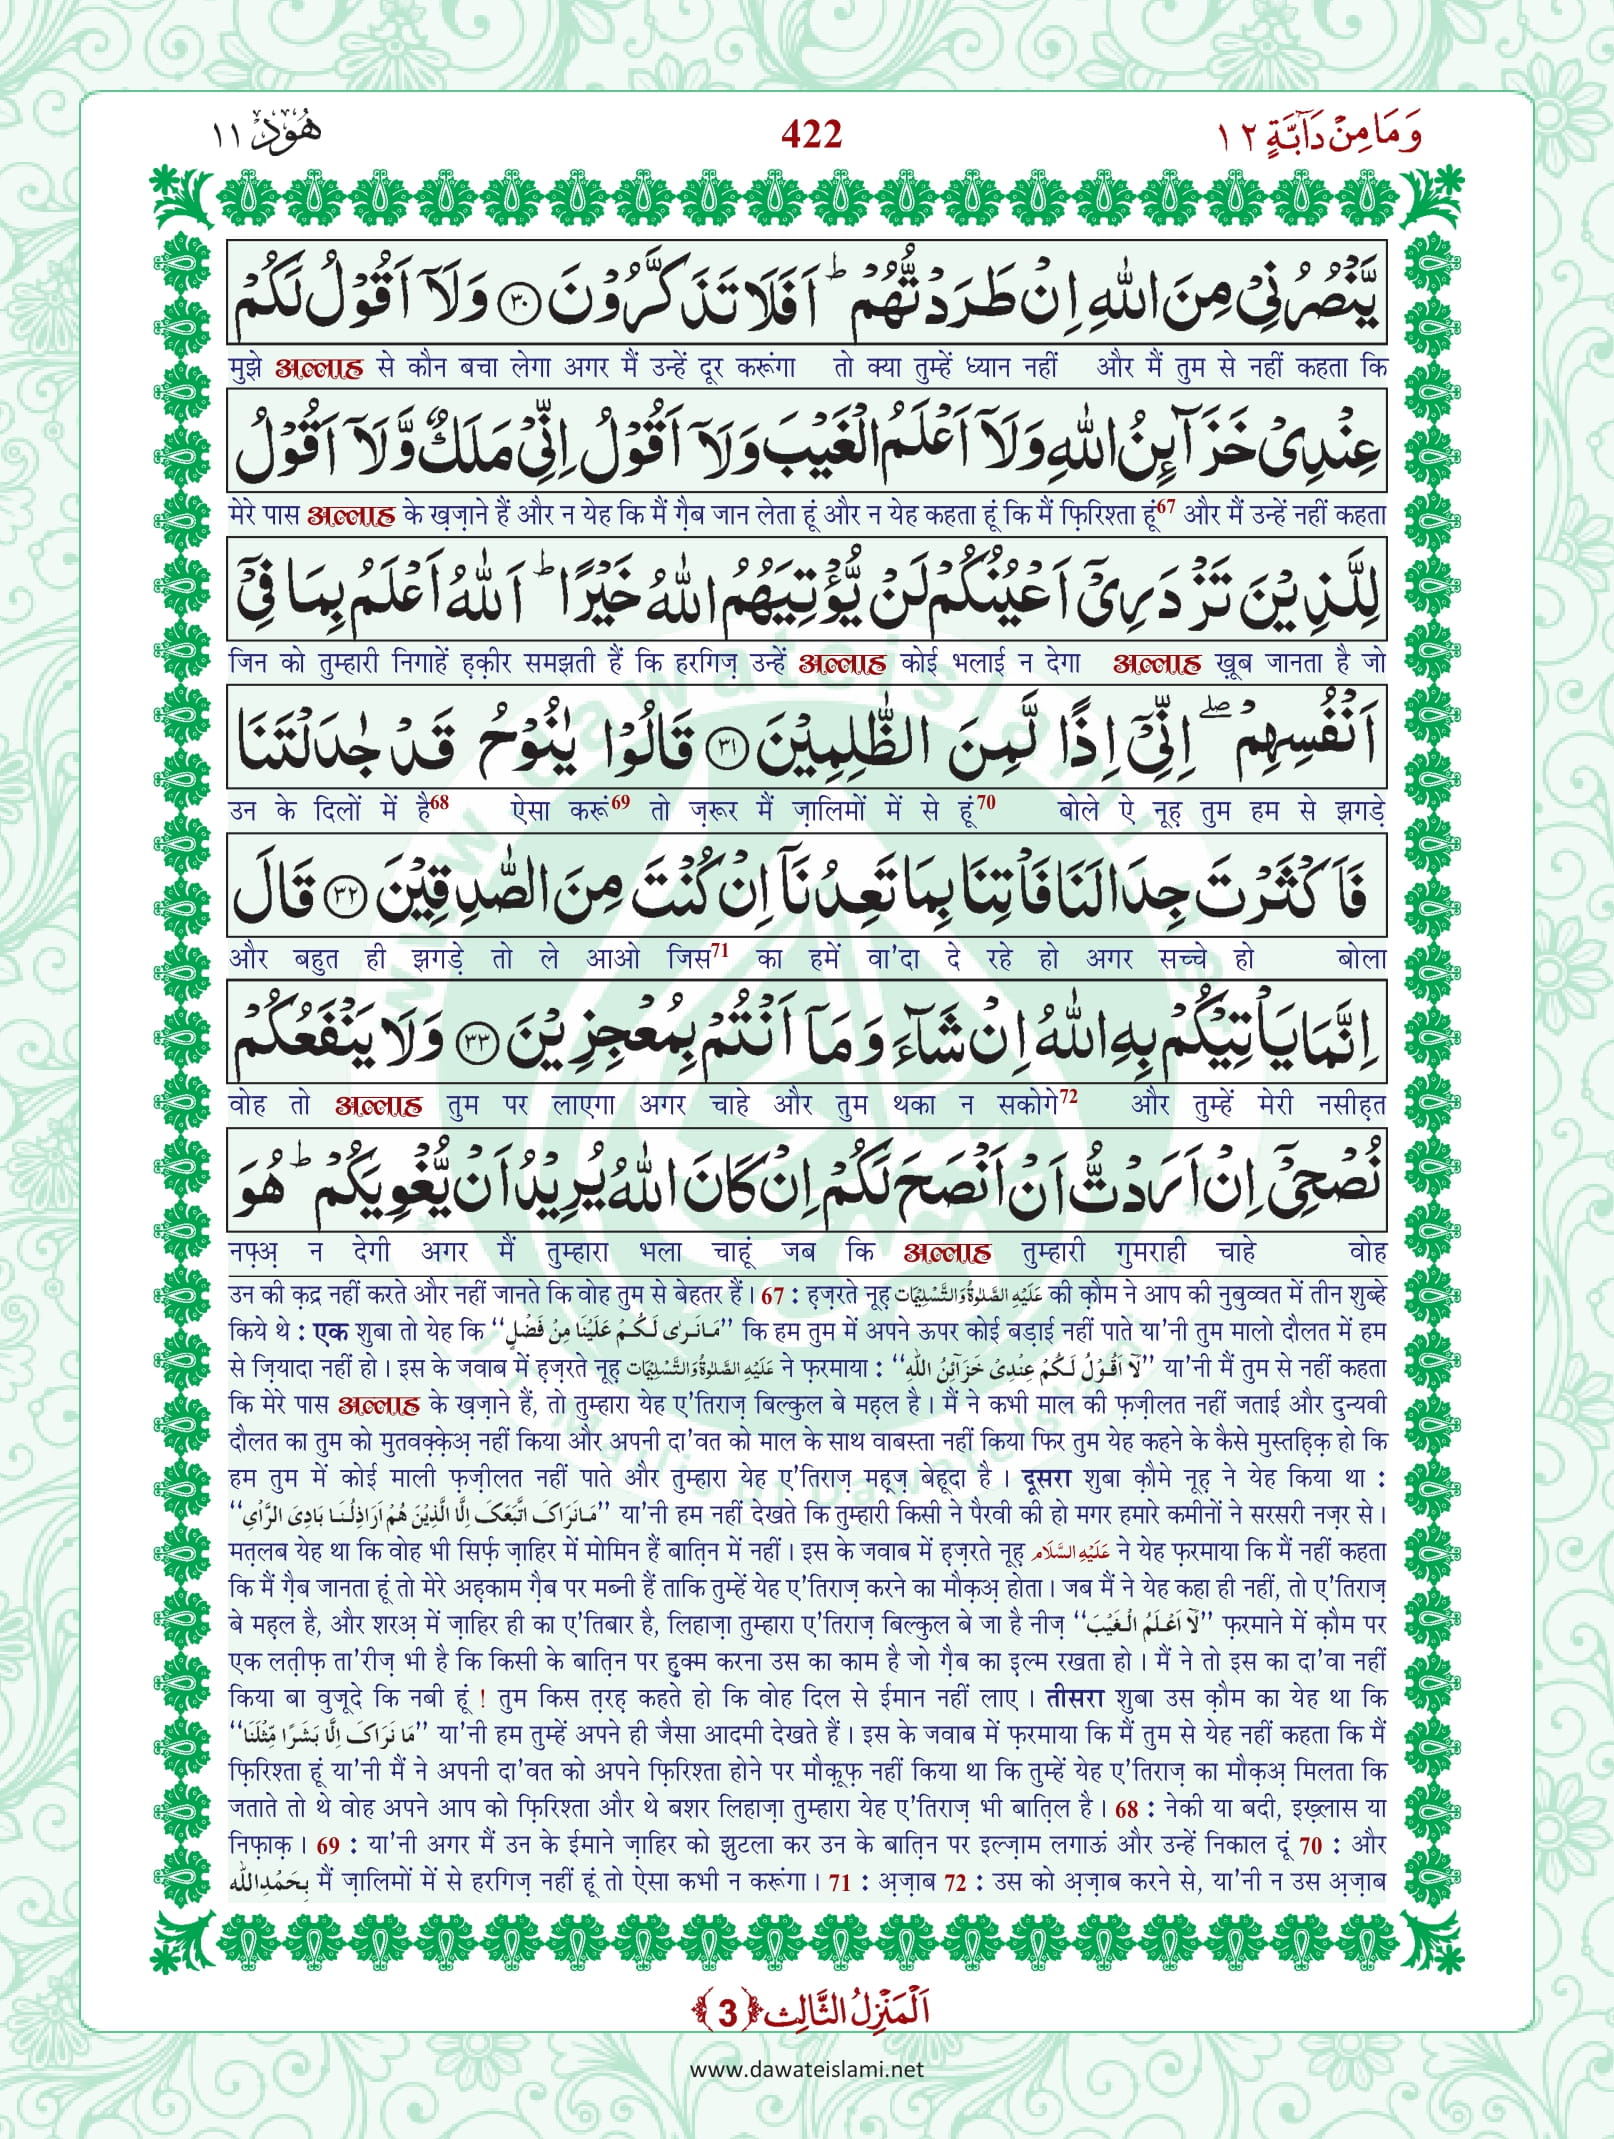 وَمَا مِنْ دَآبَّةٍ ١٢
422
هُوْد ١١
يَّنْصُرُنِيْ مِنَ اللّٰهِ اِنْ طَرَدْتُّهُمْ ؕ اَفَلَا تَذَكَّرُوْنَ ﴿۳۰﴾ وَلَاۤ اَقُوْلُ لَكُمْ
मुझे अल्लाह से कौन बचा लेगा अगर मैं उन्हें दूर करूंगा तो क्या तुम्हें ध्यान नहीं और मैं तुम से नहीं कहता कि
عِنْدِيْ خَزَآئِنُ اللّٰهِ وَلَاۤ اَعْلَمُ الْغَيْبَ وَلَاۤ اَقُوْلُ اِنِّيْ مَلَكٌ وَّلَاۤ اَقُوْلُ
मेरे पास अल्लाह के ख़ज़ाने हैं और न येह कि मैं ग़ैब जान लेता हूं और न येह कहता हूं कि मैं फ़िरिश्ता हूं67 और मैं उन्हें नहीं कहता
لِلَّذِيْنَ تَزْدَرِيْۤ اَعْيُنُكُمْ لَنْ يُّؤْتِيَهُمُ اللّٰهُ خَيْرًا ؕ اَللّٰهُ اَعْلَمُ بِمَا فِيْۤ
जिन को तुम्हारी निगाहें ह़क़ीर समझती हैं कि हरगिज़ उन्हें अल्लाह कोई भलाई न देगा अल्लाह ख़ूब जानता है जो
اَنْفُسِهِمْ ۖۚ اِنِّيْۤ اِذًا لَّمِنَ الظّٰلِمِيْنَ ﴿۳۱﴾ قَالُوْا يٰنُوْحُ قَدْ جٰدَلْتَنَا
उन के दिलों में है68 ऐसा करूं69 तो ज़रूर मैं ज़ालिमों में से हूं70 बोले ऐ नूह़ तुम हम से झगड़े
فَاَكْثَرْتَ جِدَالَنَا فَاْتِنَا بِمَا تَعِدُنَاۤ اِنْ كُنْتَ مِنَ الصّٰدِقِيْنَ ﴿۳۲﴾ قَالَ
और बहुत ही झगड़े तो ले आओ जिस71 का हमें वा'दा दे रहे हो अगर सच्चे हो बोला
اِنَّمَا يَاْتِيْكُمْ بِهِ اللّٰهُ اِنْ شَآءَ وَمَاۤ اَنْتُمْ بِمُعْجِزِيْنَ ﴿۳۳﴾ وَلَا يَنْفَعُكُمْ
वोह तो अल्लाह तुम पर लाएगा अगर चाहे और तुम थका न सकोगे72 और तुम्हें मेरी नसीह़त
نُصْحِيْۤ اِنْ اَرَدْتُّ اَنْ اَنْصَحَ لَكُمْ اِنْ كَانَ اللّٰهُ يُرِيْدُ اَنْ يُّغْوِيَكُمْ ؕ هُوَ
नफ़्अ़ न देगी अगर मैं तुम्हारा भला चाहूं जब कि अल्लाह तुम्हारी गुमराही चाहे वोह
उन की क़द्र नहीं करते और नहीं जानते कि वोह तुम से बेहतर हैं। 67 : ह़ज़रते नूह़ عَلَيْهِ الصَّلٰوةُ وَالتَّسْلِيْمَات की क़ौम ने आप की नुबुव्वत में तीन शुब्हे
किये थे : एक शुबा तो येह कि “مَانَرٰى لَكُمْ عَلَيْنَا مِنْ فَضْلٍ” कि हम तुम में अपने ऊपर कोई बड़ाई नहीं पाते या'नी तुम मालो दौलत में हम
से ज़ियादा नहीं हो। इस के जवाब में ह़ज़रते नूह़ عَلَيْهِ الصَّلٰوةُ وَالتَّسْلِيْمَات ने फ़रमाया : “لَآ اَقُوْلُ لَكُمْ عِنْدِيْ خَزَآئِنُ اللّٰهِ” या'नी मैं तुम से नहीं कहता
कि मेरे पास अल्लाह के ख़ज़ाने हैं, तो तुम्हारा येह ए'तिराज़ बिल्कुल बे मह़ल है। मैं ने कभी माल की फ़ज़ीलत नहीं जताई और दुन्यवी
दौलत का तुम को मुतवक़्क़ेअ़ नहीं किया और अपनी दा'वत को माल के साथ वाबस्ता नहीं किया फिर तुम येह कहने के कैसे मुस्तह़िक़ हो कि
हम तुम में कोई माली फ़ज़ीलत नहीं पाते और तुम्हारा येह ए'तिराज़ मह़्ज़ बेहूदा है। दूसरा शुबा क़ौमे नूह़ ने येह किया था :
“مَانَرَاكَ اتَّبَعَكَ اِلَّا الَّذِيْنَ هُمْ اَرَاذِلُنَا بَادِىَ الرَّاْىِ” या'नी हम नहीं देखते कि तुम्हारी किसी ने पैरवी की हो मगर हमारे कमीनों ने सरसरी नज़र से।
मत़लब येह था कि वोह भी सिर्फ़ ज़ाहिर में मोमिन हैं बात़िन में नहीं। इस के जवाब में ह़ज़रते नूह़ عَلَيْهِ السَّلَام ने येह फ़रमाया कि मैं नहीं कहता
कि मैं ग़ैब जानता हूं तो मेरे अह़काम ग़ैब पर मब्नी हैं ताकि तुम्हें येह ए'तिराज़ करने का मौक़अ़ होता। जब मैं ने येह कहा ही नहीं, तो ए'तिराज़
बे मह़ल है, और शरअ़ में ज़ाहिर ही का ए'तिबार है, लिहाज़ा तुम्हारा ए'तिराज़ बिल्कुल बे जा है नीज़ “لَآ اَعْلَمُ الْغَيْبَ” फ़रमाने में क़ौम पर
एक लत़ीफ़ ता'रीज़ भी है कि किसी के बात़िन पर हु़क्म करना उस का काम है जो ग़ैब का इल्म रखता हो। मैं ने तो इस का दा'वा नहीं
किया बा वुजूदे कि नबी हूं ! तुम किस त़रह़ कहते हो कि वोह दिल से ईमान नहीं लाए। तीसरा शुबा उस क़ौम का येह था कि
“مَا نَرَاكَ اِلَّا بَشَرًا مِّثْلَنَا” या'नी हम तुम्हें अपने ही जैसा आदमी देखते हैं। इस के जवाब में फ़रमाया कि मैं तुम से येह नहीं कहता कि मैं
फ़िरिश्ता हूं या'नी मैं ने अपनी दा'वत को अपने फ़िरिश्ता होने पर मौक़ूफ़ नहीं किया था कि तुम्हें येह ए'तिराज़ का मौक़अ़ मिलता कि
जताते तो थे वोह अपने आप को फ़िरिश्ता और थे बशर लिहाज़ा तुम्हारा येह ए'तिराज़ भी बात़िल है। 68 : नेकी या बदी, इख़्लास या
निफ़ाक़। 69 : या'नी अगर मैं उन के ईमाने ज़ाहिर को झुटला कर उन के बात़िन पर इल्ज़ाम लगाऊं और उन्हें निकाल दूं 70 : और
بِحَمْدِاللّٰه मैं ज़ालिमों में से हरगिज़ नहीं हूं तो ऐसा कभी न करूंगा। 71 : अ़ज़ाब 72 : उस को अ़ज़ाब करने से, या'नी न उस अ़ज़ाब
اَلْمَنْزِلُ الثَّالِث ﴿3﴾
www.dawateislami.net